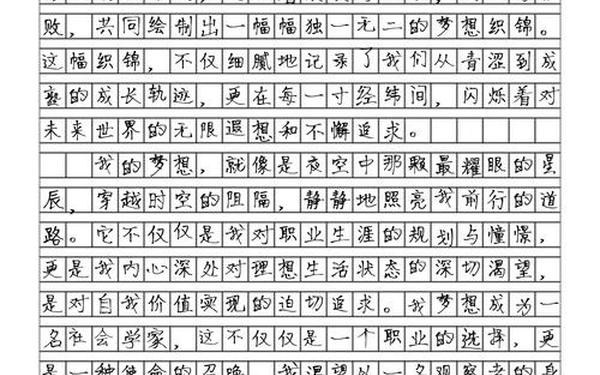 败，共同绘制出一幅幅独一无二的梦想织锦。
这幅织锦，不仅细腻地记录了我们从青涩到成
熟的成长轨迹，更在每一寸经纬间，闪烁着对
未来世界的无限遐想和不懈追求。
我的梦想，就像是夜空中那颗最耀眼的星
辰，穿越时空的阻隔，静静地照亮我前行的道
路。它不仅仅是我对职业生涯的规划与憧憬，
更是我内心深处对理想生活状态的深切渴望，
是对自我价值实现的迫切追求。我梦想成为一
名社会学家，这不仅仅是一个职业的选择，更
是一种使命的召唤。我渴望以一名观察者的身